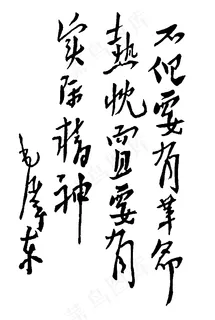 不但要有革命
热忱而且要有
实际精神
毛泽东